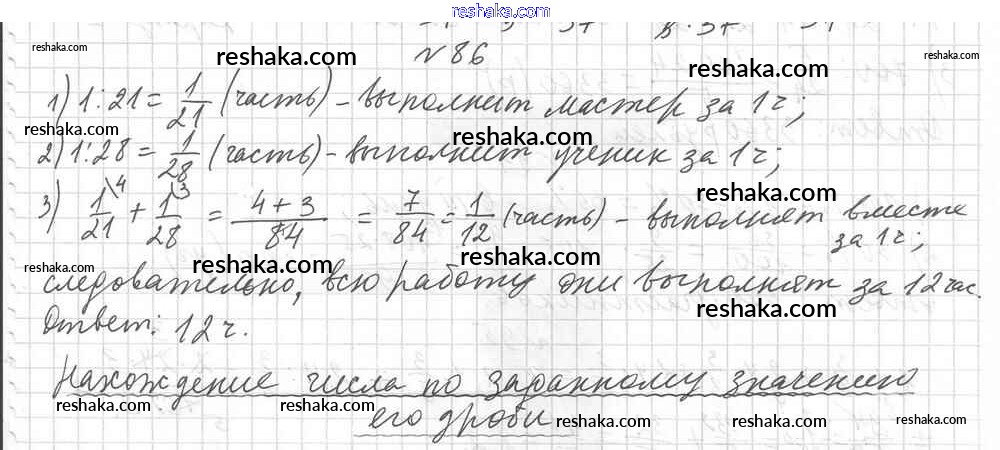 reshaka.com
№ 86
reshaka.com reshaka.com reshaka.com
reshaka.com
1) 1:21 = 1/21 (часть) – выполнит мастер за 1ч;
reshaka.com reshaka.com
2) 1:28 = 1/28 (часть) – выполнит ученик за 1ч;
reshaka.com reshaka.com
3) 1\4/21 + 1\3/28 = 4+3/84 = 7/84 = 1/12 (часть) – выполнят вместе
за 1ч;
reshaka.com reshaka.com reshaka.com
следовательно, всю работу они выполнят за 12 час.
reshaka.com
Ответ: 12 ч.
Нахождение числа по заданному значению
reshaka.com reshaka.com reshaka.com
его дроби
reshaka.com reshaka.com reshaka.com